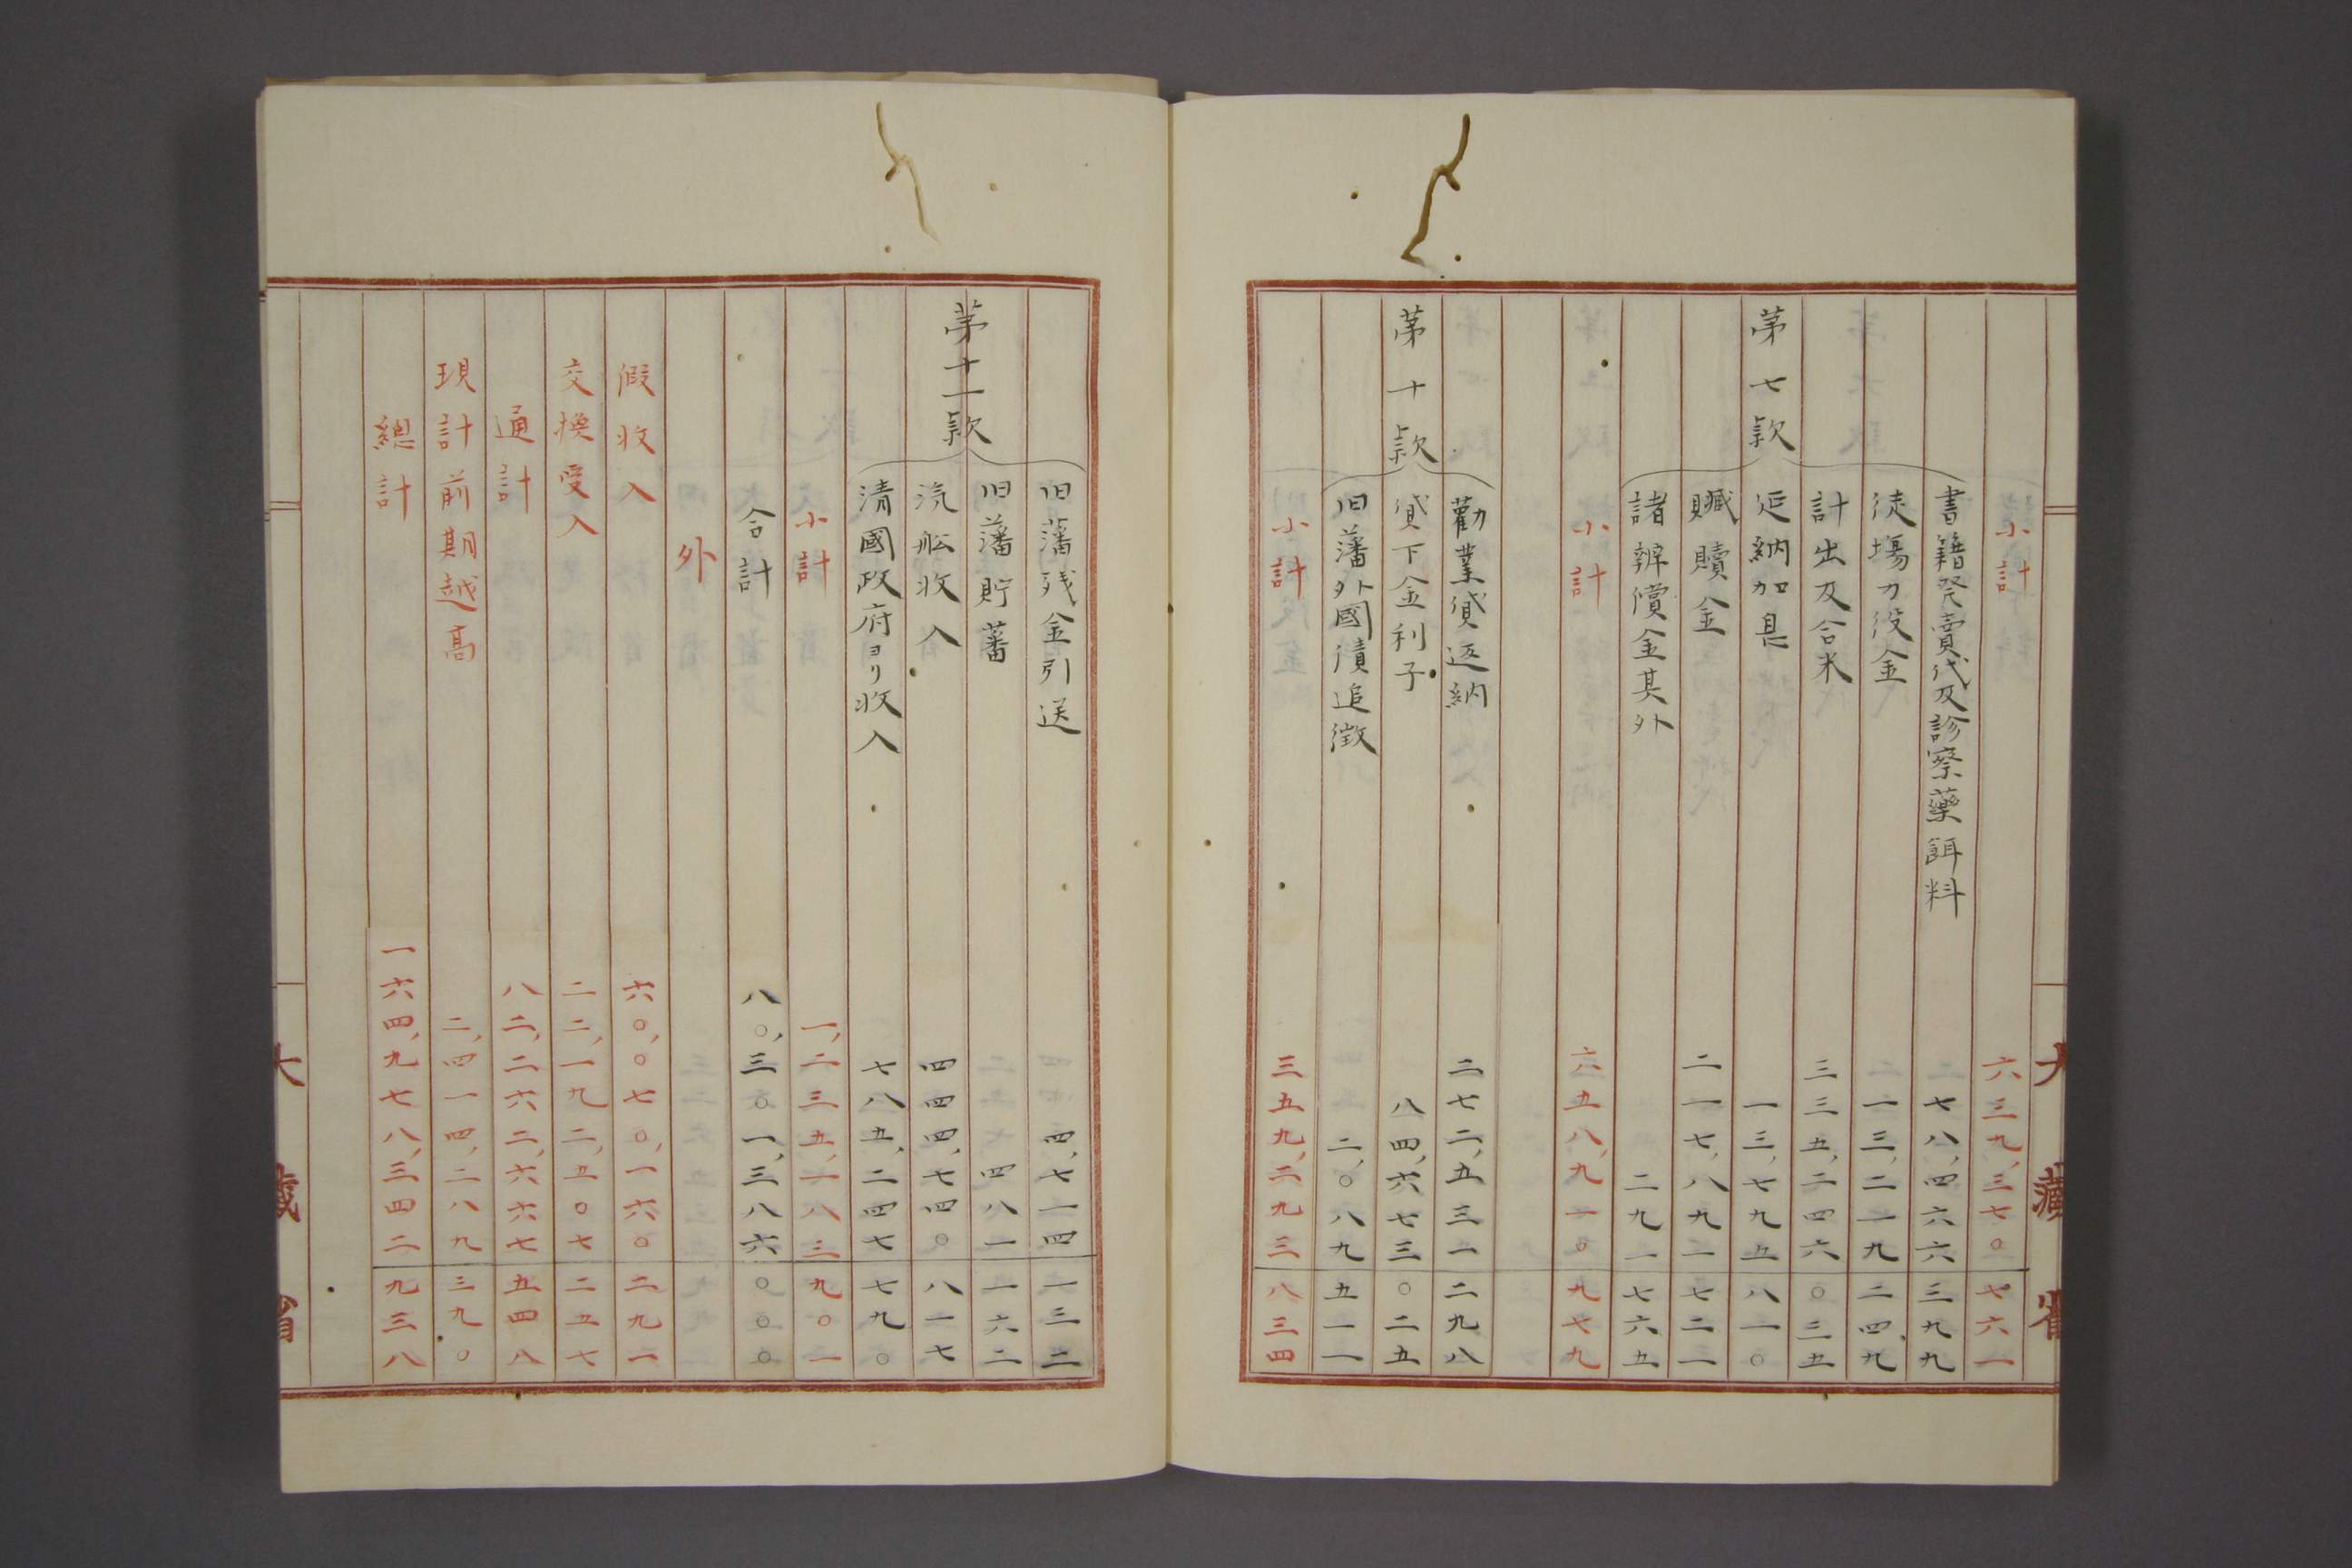 大藏省
小計 六三九,三七〇 七六一
第七款
書籍発賣代及診察藥餌料 七八,四六六 三九九
徒場力役金 一三,二一九 二四九
計出及合米 三三五,二四六 〇三五
延納加息 一三,七九五 八一〇
贓贖金 二一七,八九一 七二一
諸辨償金其外 二九一 七六五
小計 六五八,九一〇 九七九
第十款
勸業貸返納 二七二,五三一 二九八
貸下金利子 八四,六七三 〇二五
旧藩外國債追徴 二,〇八九 五一一
小計 三五九,二九三 八三四
第十一款
旧藩残金引送 四,七一四 一三二
旧藩貯蓄 四八一 一六二
汽舩收入 四四四,七四〇 八一七
清國政府ヨリ收入 七八五,二四七 七九〇
小計 一,二三五,一八三 九〇一
合計 八〇,三〇一,三八六 〇〇〇
外
假收入 六〇,〇七〇,一六〇 二九一
交換受入 二二,一九二,五〇七 二五七
通計 八二,二六二,六六七 五四八
現計前期越高 二,四一四,二八九 三九〇
總計 一六四,九七八,三四二 九三八
大藏省